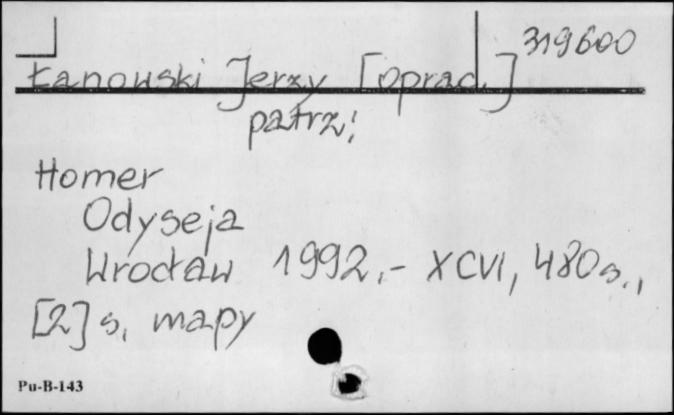 319600
Łanowski Jerzy [oprac.]
patrz:
Homer
Odyseja
Wrocław 1992.- XCVI, 480 s.,
[2] s. mapy
Pu-B-143